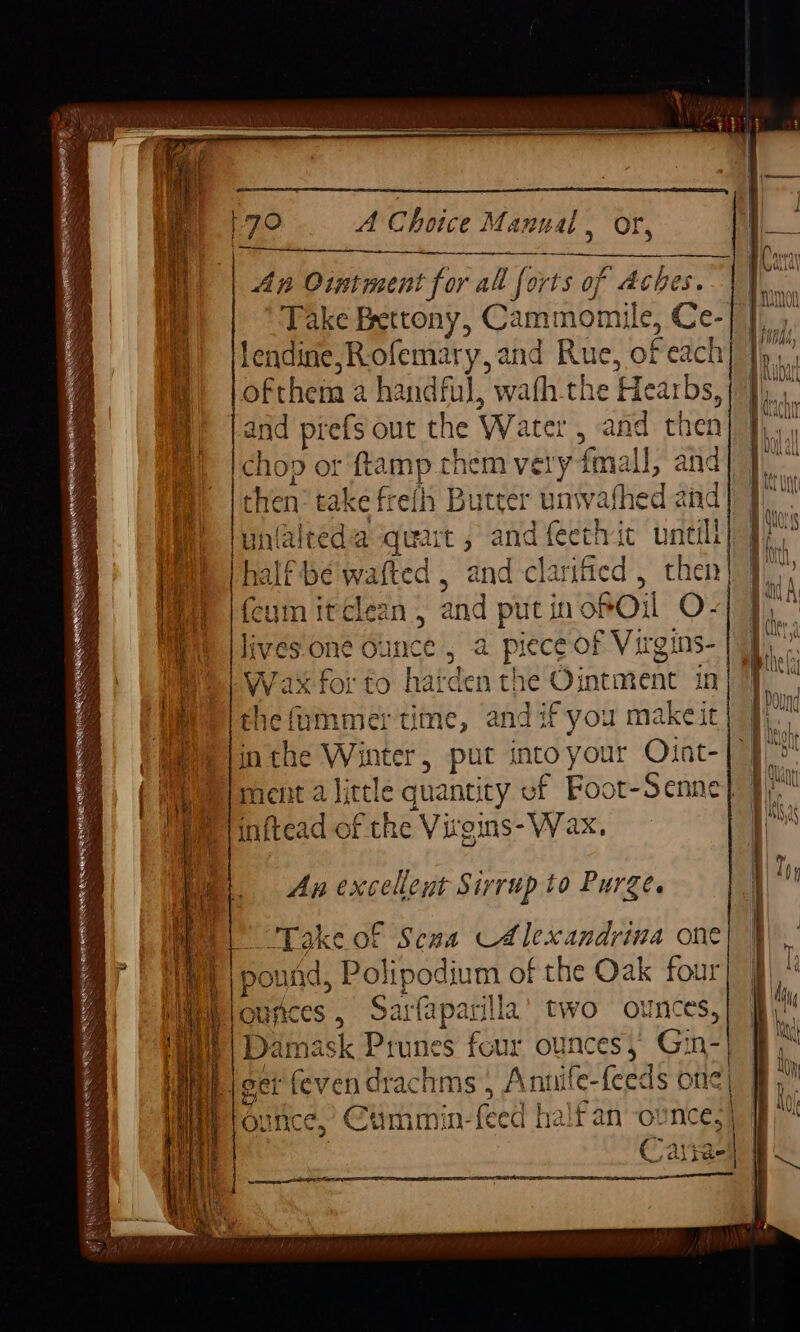 170 A Choice Manual, or,
An Ointment for all ſorts of Aches.
Take Bettony, Cammomile, Ce-
lendine, Roſemary, and Rue, of each
of them a handful, waſh the Hearbs,
and preſs out the Water, and then
chop or ſtamp them very ſmall, and
then take freſh Butter unwaſhed and
unſalted a quart, and ſeeth it untill
half be waſted, and clarified, then
ſcum it clean, and put in of Oil O-
lives one ounce, a piece of Virgins-
Wax for to harden the Ointment in
the ſummer time, and if you make it
in the Winter, put into your Oint-
ment a little quantity of Foot-Senne
inſtead of the Virgins-Wax.
An excellent Sirrup to Purge.
Take of Sena Alexandrina one
pound, Polipodium of the Oak four
ounces, Sarſaparilla two ounces,
Damask Prunes four ounces, Gin-
ger ſeven drachms, Anniſe-ſeeds one
ounce, Cummin-ſeed half an ounce,
Carra-